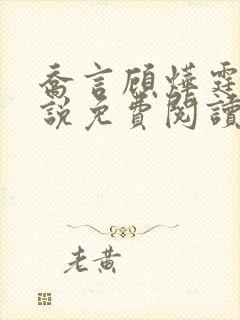 喬言顧燁霆
說免費閱讀
老黃